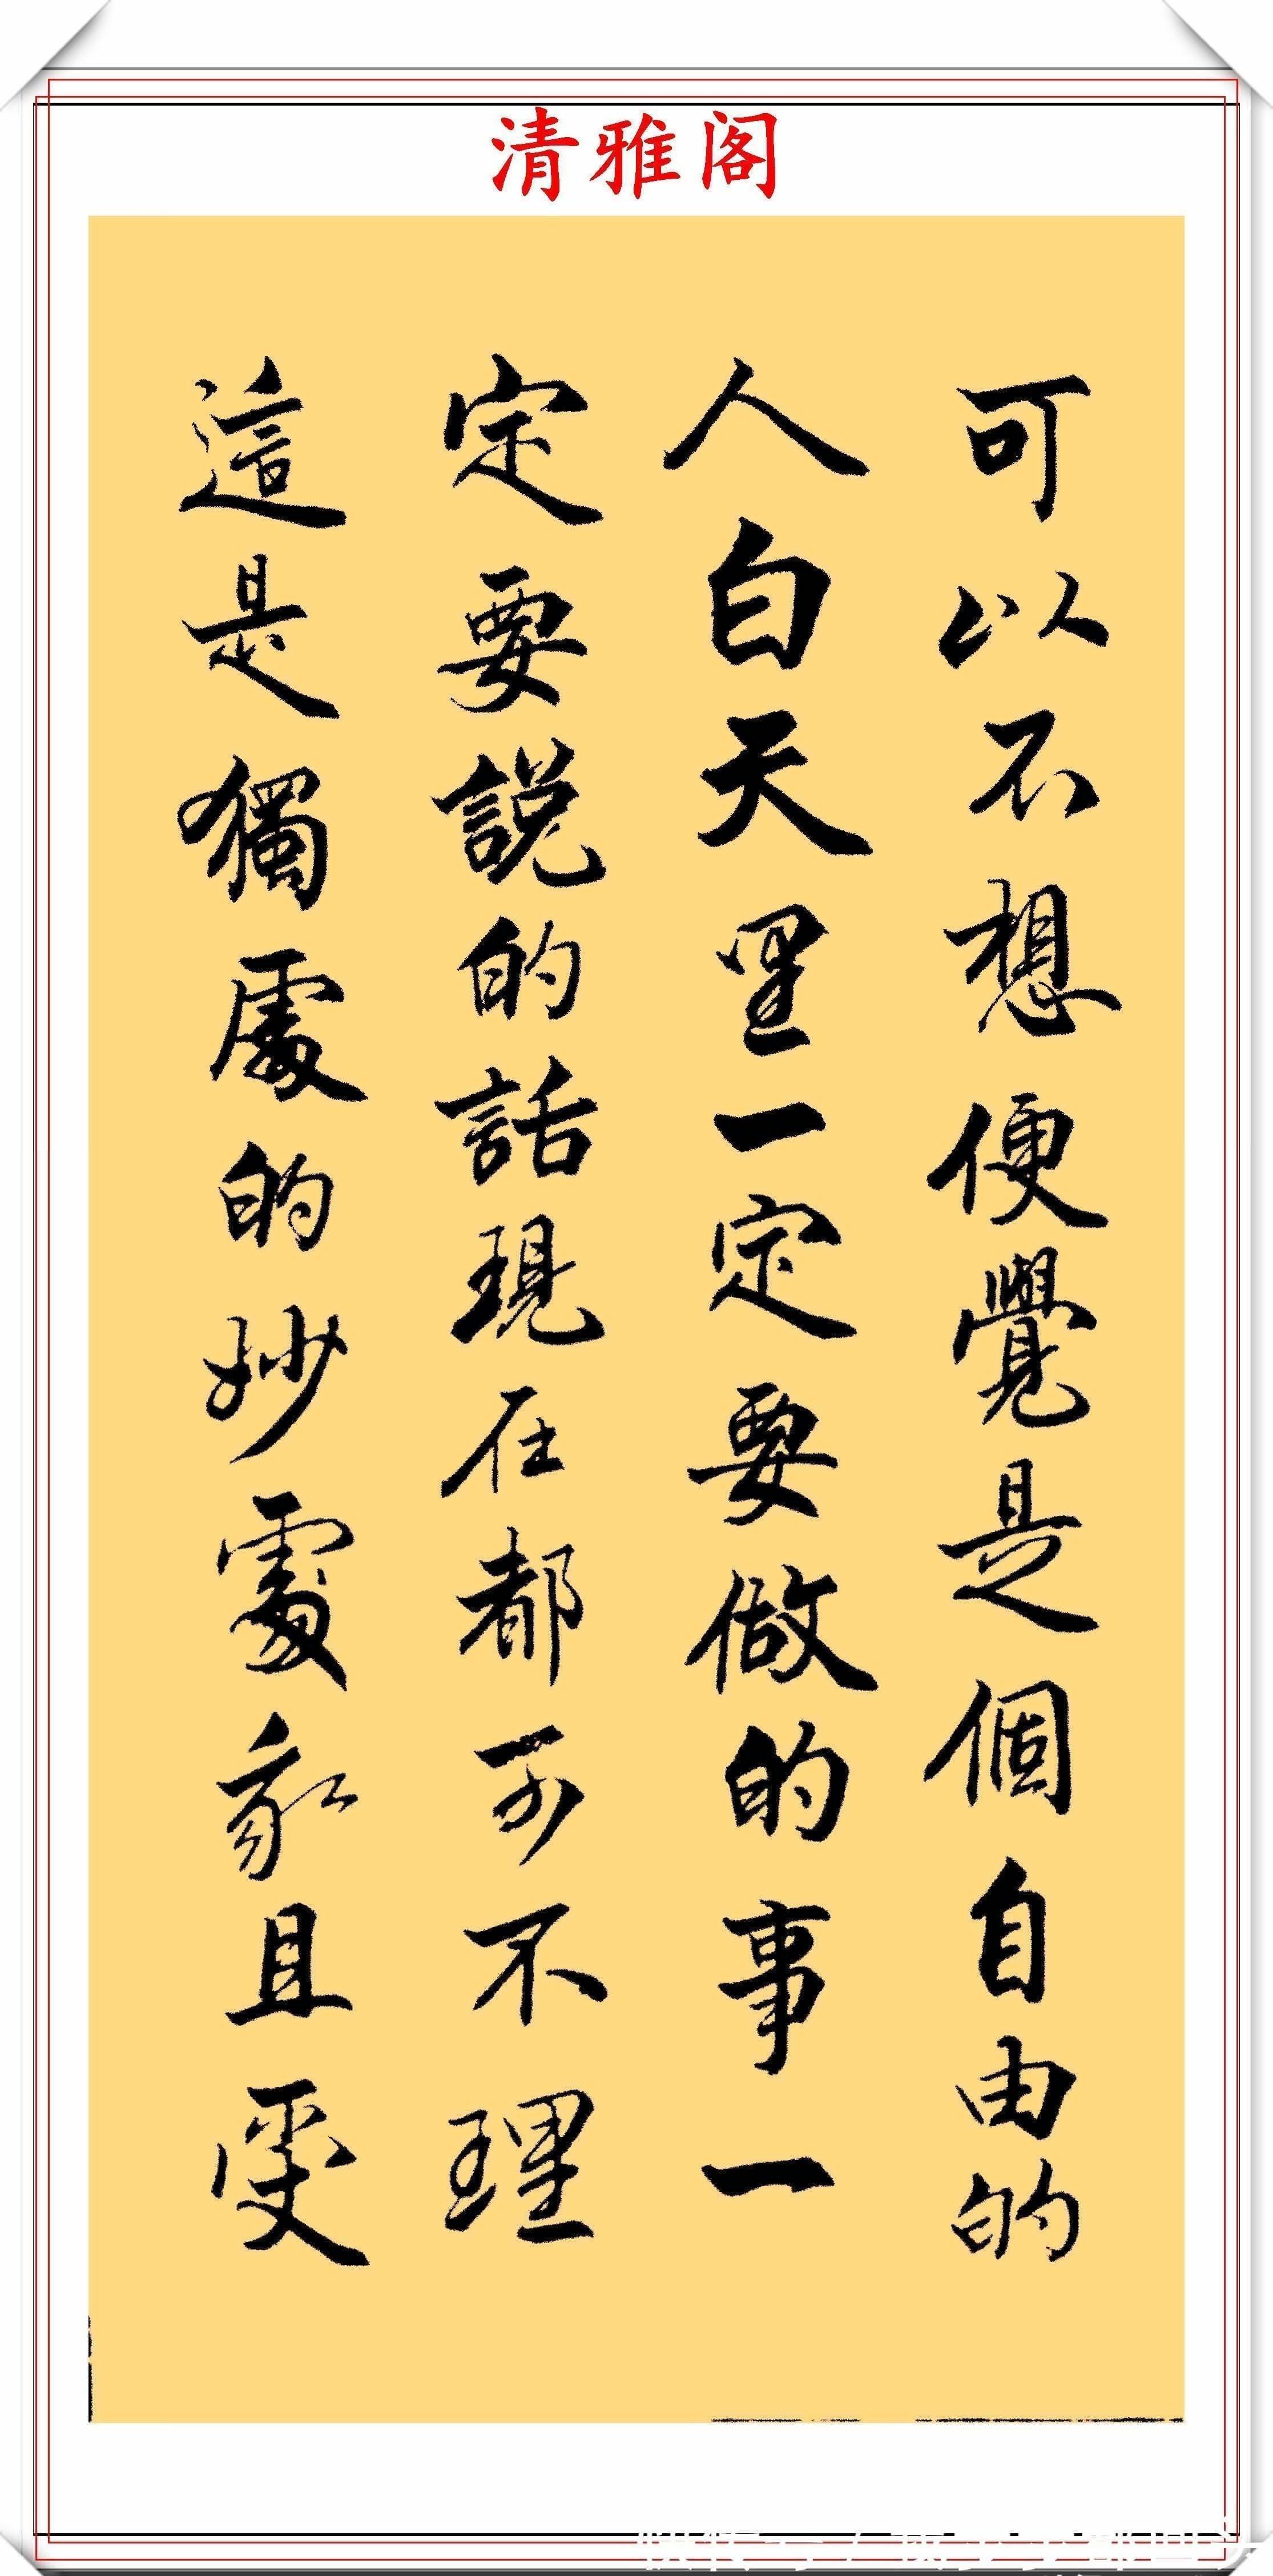 清雅阁
可以不想便覺是個自由的
人白天里一定要做的事一
定要説的話現在都可不理
這是獨處的妙處我且受